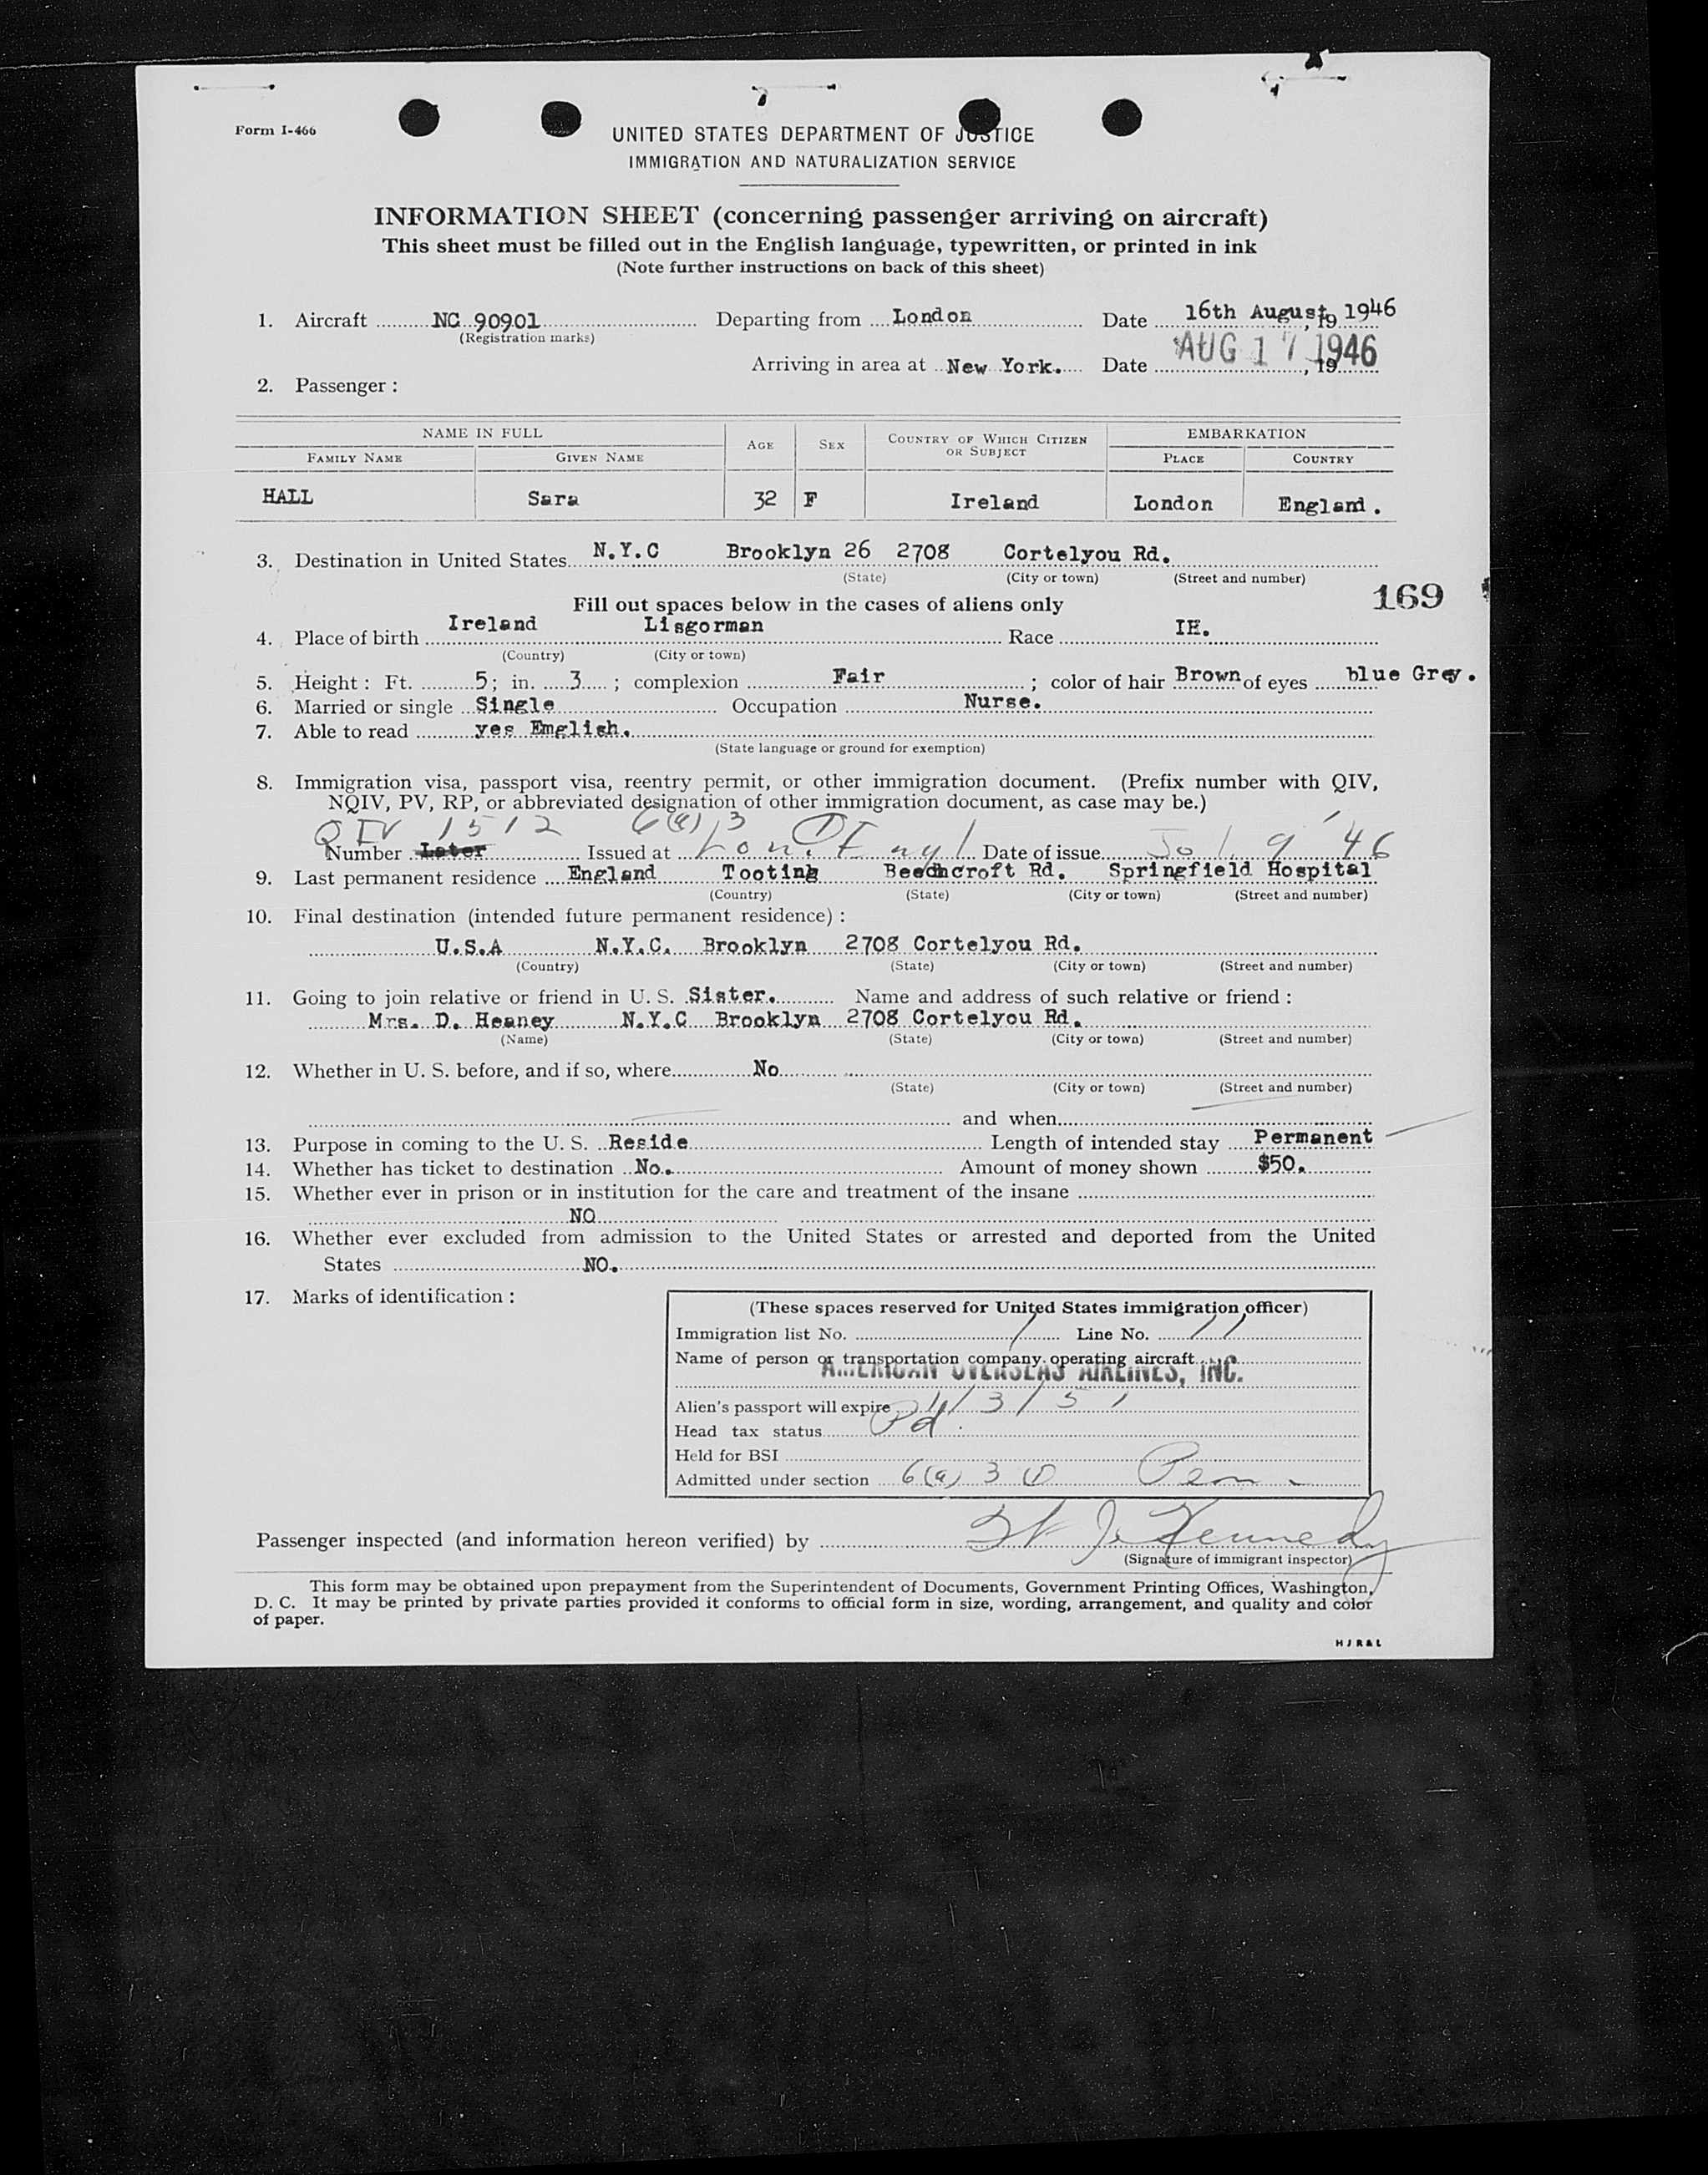 Form I-466
UNITED STATES DEPARTMENT OF JUSTICE
IMMIGRATION AND NATURALIZATION SERVICE
INFORMATION SHEET (concerning passenger arriving on aircraft)
This sheet must be filled out in the English language, typewritten, or printed in ink
(Note further instructions on back of this sheet)
1. Aircraft NC 90901 Departing from London Date 16th August, 19 1946
(Registration marks)
Arriving in area at New York. Date AUG 17 1946, 19
2. Passenger:
NAME IN FULL AGE SEX COUNTRY OF WHICH CITIZEN OR SUBJECT EMBARKATION
FAMILY NAME GIVEN NAME PLACE COUNTRY
HALL Sara 32 F Ireland London England.
3. Destination in United States N.Y.C Brooklyn 26 2708 Cortelyou Rd.
(State) (City or town) (Street and number)
169
Fill out spaces below in the cases of aliens only
4. Place of birth Ireland Lisgorman Race IH.
(Country) (City or town)
5. Height: Ft. 5; in. 3; complexion Fair; color of hair Brown of eyes blue Grey.
6. Married or single Single Occupation Nurse.
7. Able to read yes Emglish.
(State language or ground for exemption)
8. Immigration visa, passport visa, reentry permit, or other immigration document. (Prefix number with QIV,
NQIV, PV, RP, or abbreviated designation of other immigration document, as case may be.)
QIV 1512 6(a) 3 (1)
Number Later Issued at Lon. Engl. Date of issue Jul. 9 '46
9. Last permanent residence England Tooting Beechcroft Rd. Springfield Hospital
(Country) (State) (City or town) (Street and number)
10. Final destination (intended future permanent residence):
U.S.A N.Y.C. Brooklyn 2708 Cortelyou Rd.
(Country) (State) (City or town) (Street and number)
11. Going to join relative or friend in U. S. Sister. Name and address of such relative or friend:
Mrs. D. Heaney N.Y.C Brooklyn 2708 Cortelyou Rd.
(Name) (State) (City or town) (Street and number)
12. Whether in U. S. before, and if so, where No
(State) (City or town) (Street and number)
and when
13. Purpose in coming to the U. S. Reside Length of intended stay Permanent
14. Whether has ticket to destination No. Amount of money shown $50.
15. Whether ever in prison or in institution for the care and treatment of the insane
NO
16. Whether ever excluded from admission to the United States or arrested and deported from the United
States NO.
17. Marks of identification:
(These spaces reserved for United States immigration officer)
Immigration list No. 1 Line No. 11
Name of person or transportation company operating aircraft
AMERICAN OVERSEAS AIRLINES, INC.
Alien's passport will expire 1/3/51
Head tax status Pd.
Held for BSI
Admitted under section 6(a) 3 (1) Perm
Passenger inspected (and information hereon verified) by J. Kennedy
(Signature of immigrant inspector)
This form may be obtained upon prepayment from the Superintendent of Documents, Government Printing Offices, Washington,
D. C. It may be printed by private parties provided it conforms to official form in size, wording, arrangement, and quality and color
of paper.
HJR&L